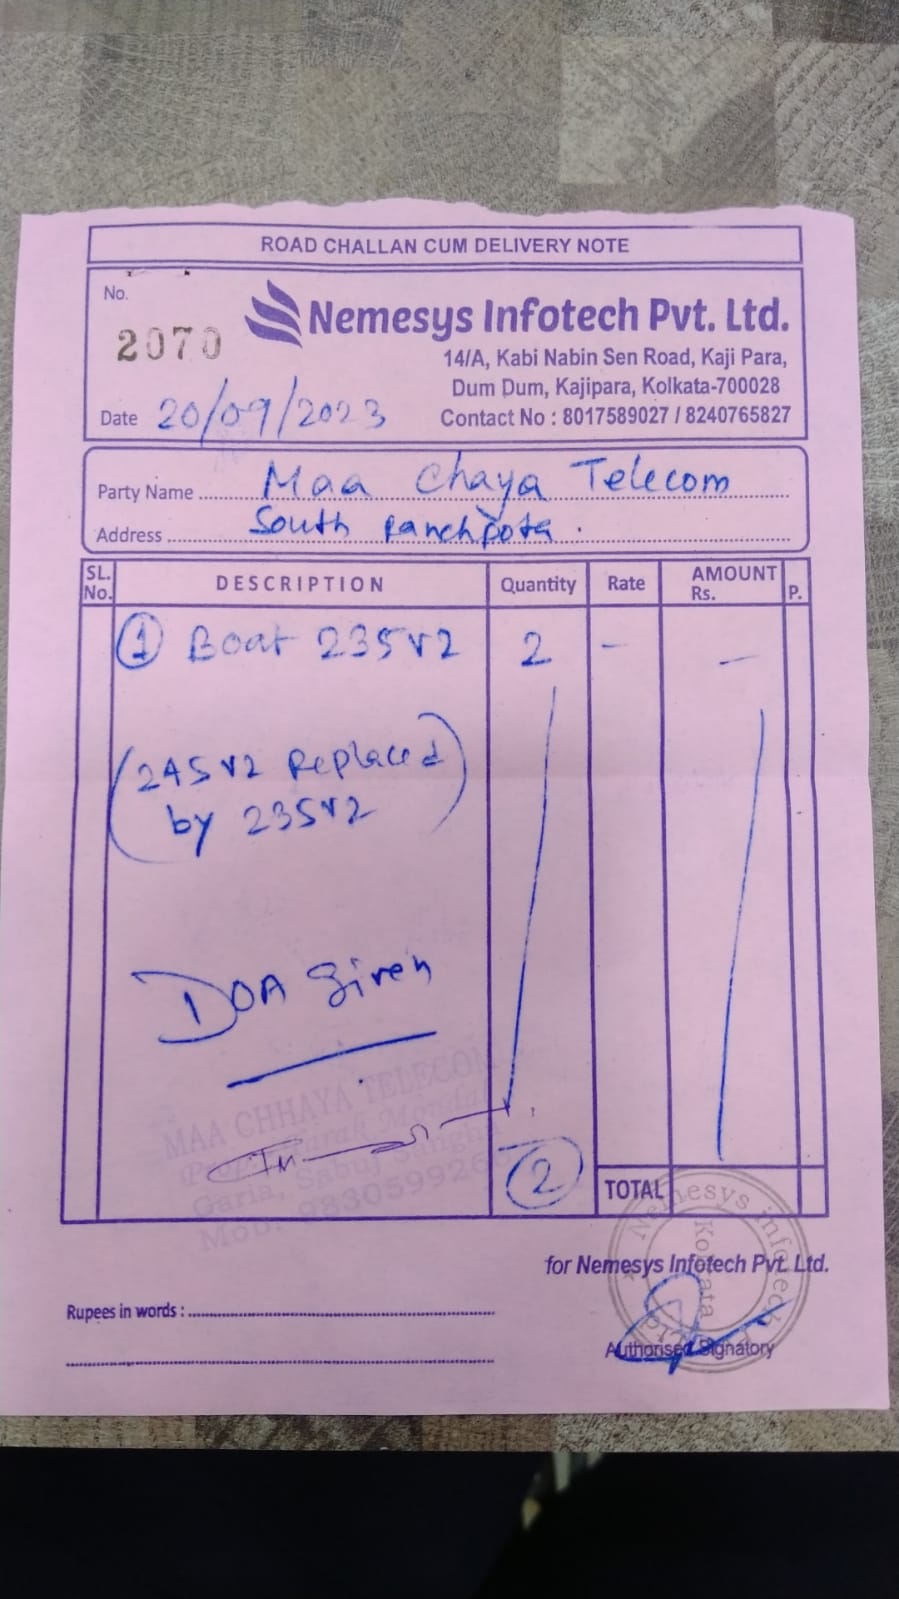 ROAD CHALLAN CUM DELIVERY NOTE
No.
2070
Nemesys Infotech Pvt. Ltd.
14/A, Kabi Nabin Sen Road, Kaji Para,
Dum Dum, Kajipara, Kolkata-700028
Contact No : 8017589027 / 8240765827
Date 20/09/2023
Party Name Maa Chaya Telecom
Address South Panchpota.
SL. No. DESCRIPTION Quantity Rate AMOUNT Rs. P.
1 Boat 235V2 2 - -
(245V2 Replaced
by 235V2)
DOA Given
MAA CHHAYA TELECOM
Garia, Sabuj Sangha
2
TOTAL
Nemesys Infotech
Kolkata
for Nemesys Infotech Pvt. Ltd.
Rupees in words :
Authorised Signatory